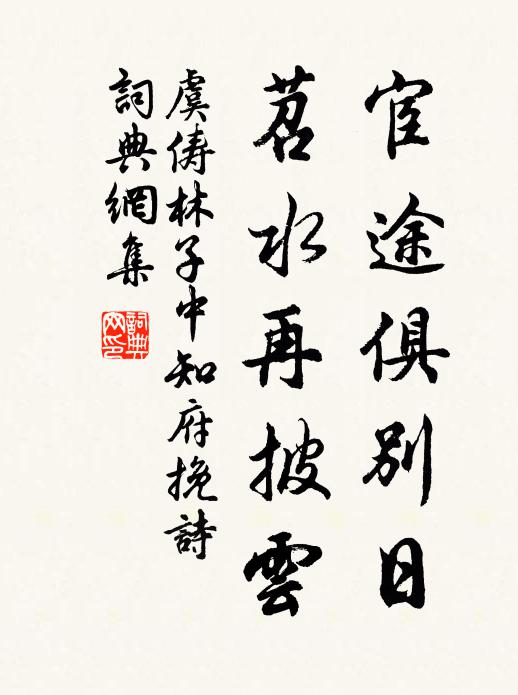 宦途俱別日
苕水再披雲
虞儔林子中知府挽詩
詞典網集
詞典网印